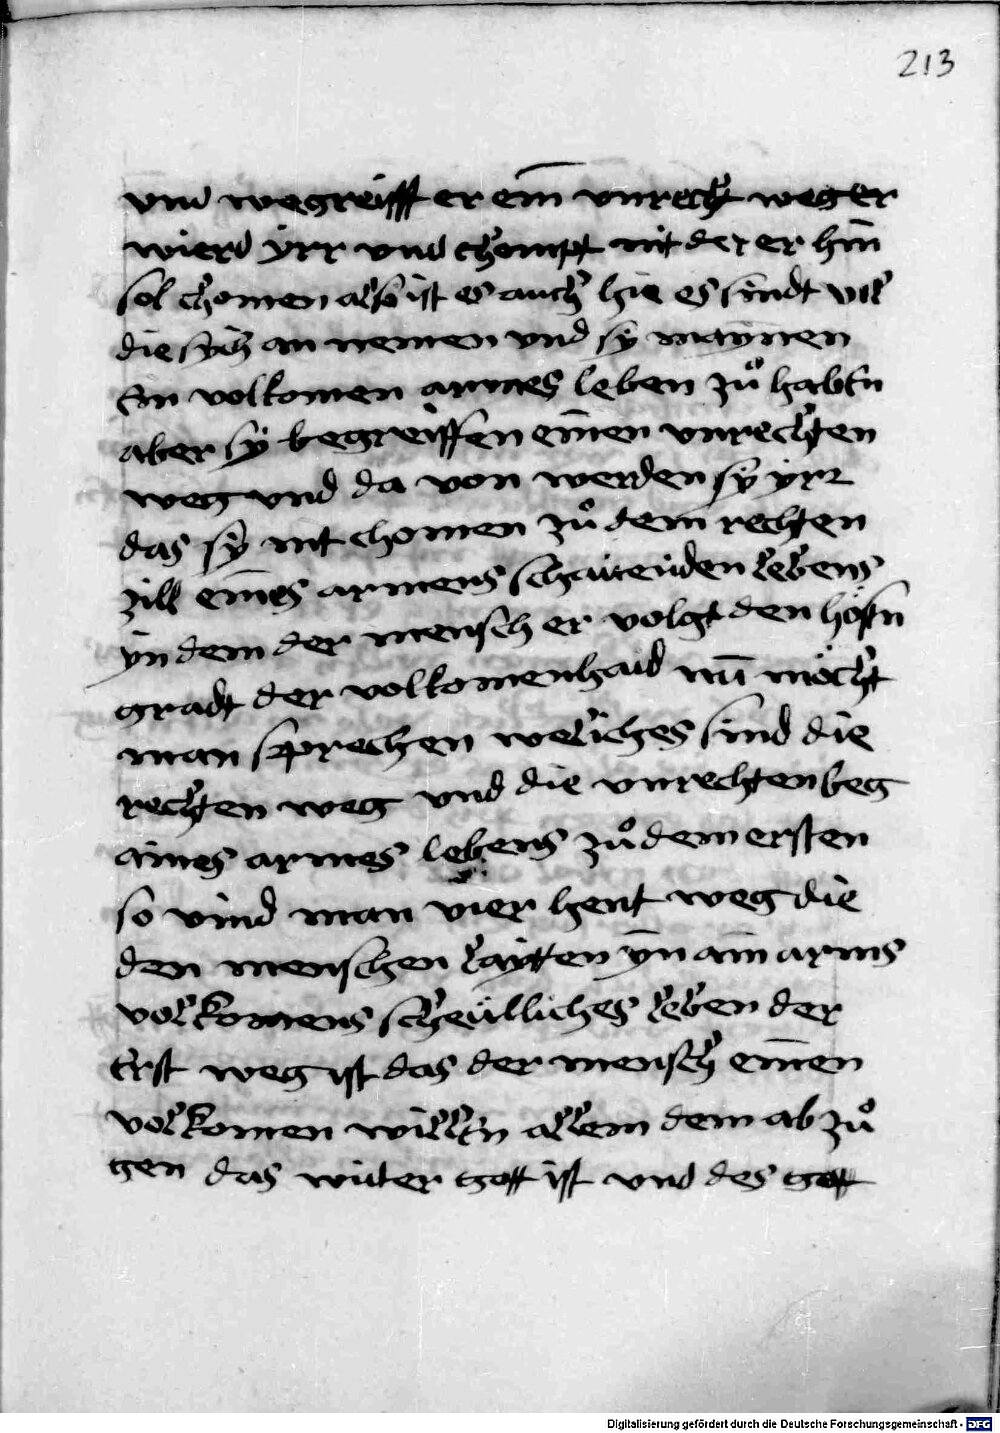 213
vnd wegreifft er ein̄ vnrecht weg er
wierd yrr vnd chompt nit der er hin
sol chomen also ist es auch hie es sindt vil
die sych an nemen vnd sy maynen
Ein volkomen armes leben zů haben
aber sy begreiffen ein̄en vnrechten
weg vnd da von werden sy yrr
das sy nit chomen zů dem rechten
zill ein̄es armens schauenden lebens
yn dem der mensch er volgt den höstn
gradt der volkomenhaid nū möcht
man sprechen weliches sind die
rechten weg vnd die vnrechten beg
aines armes lebens zů dem ersten
so vind man vier hent weg die
den menschen laytten ȳn ain arms
volkomens scheülliches leben der
Erst weg ist das der mensch ein̄en
volkomen willen allem dem ab zů
gen das wider gott ist vnd des gott
Digitalisierung gefördert durch die Deutsche Forschungsgemeinschaft - DFG